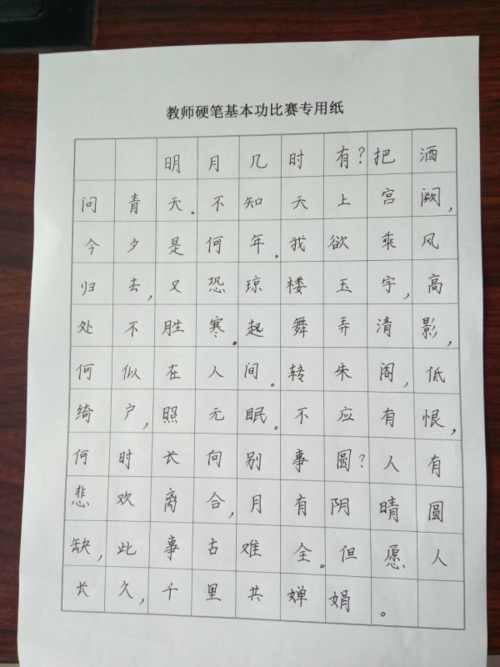 教师硬笔基本功比赛专用纸
明月几时有？把酒
问青天。不知天上宫阙，
今夕是何年。我欲乘风
归去，又恐琼楼玉宇，高
处不胜寒。起舞弄清影，
何似在人间。转朱阁，低
绮户，照无眠。不应有恨，
何时长向别事圆？人有
悲欢离合，月有阴晴圆
缺，此事古难全。但愿人
长久，千里共婵娟。